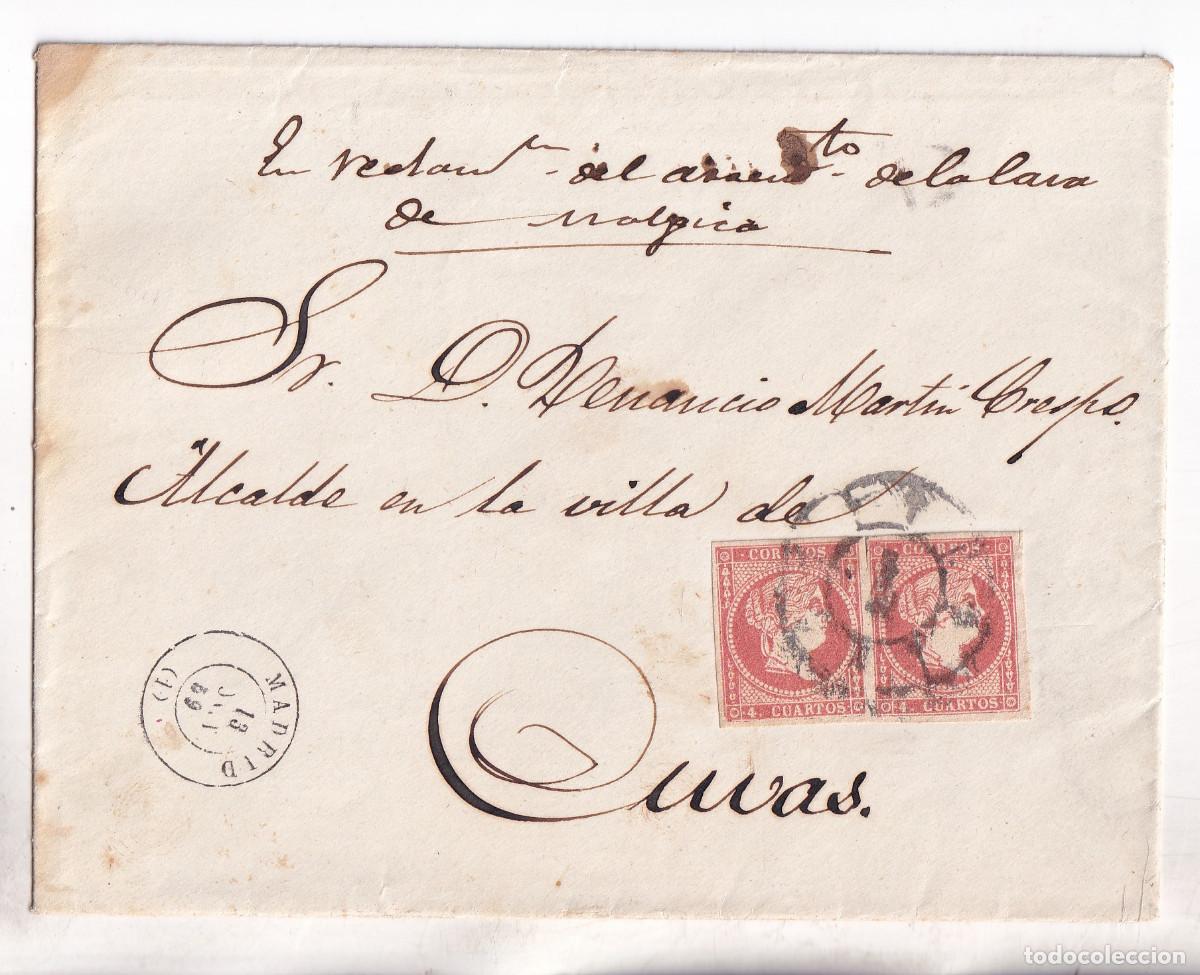 En reclam^n del arren^to de la casa
de Malpica
Sr. D. Venancio Martín Crespo.
Alcalde en la villa de
CORREOS CORREOS
1
4. CUARTOS 4. CUARTOS
MADRID
13
59
(1)
Cuevas.
todocoleccion